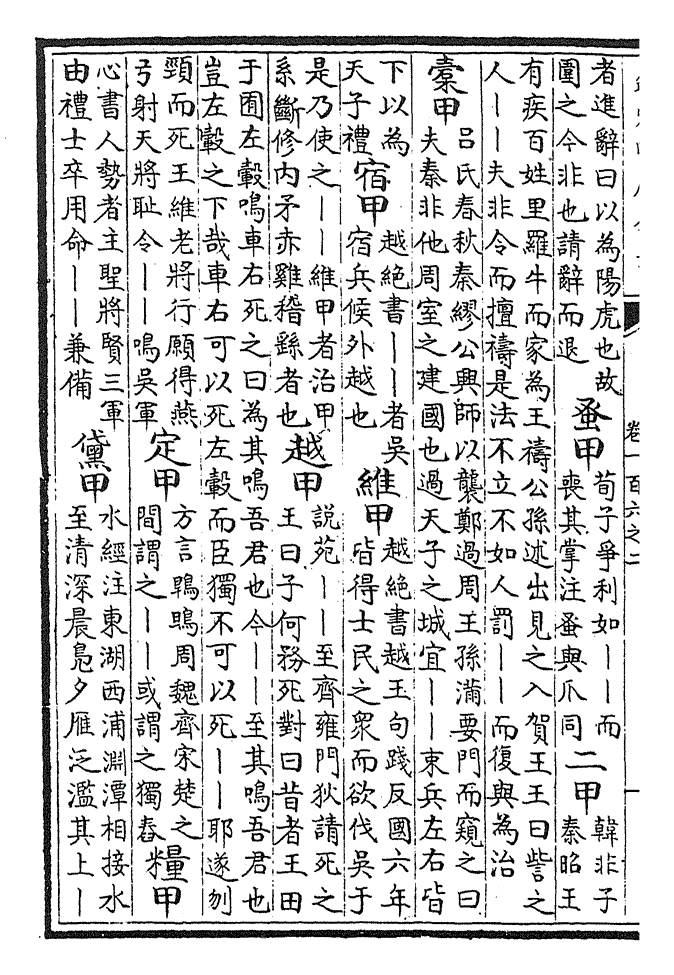 卷一百六之二
者進辭曰以為陽虎也故
圍之今非也請辭而退
蚤甲
荀子爭利如丨丨而
喪其掌注蚤與爪同
二甲
韓非子
秦昭王
有疾百姓里羅牛而家為王禱公孫述出見之入賀王王曰訾之
人丨丨夫非令而擅禱是法不立不如人罰丨丨而復與為治
櫜甲
呂氏春秋秦繆公興師以襲鄭過周王孫滿要門而窺之曰
夫秦非他周室之建國也過天子之城宜丨丨束兵左右皆
下以為
天子禮
宿甲
越絶書丨丨者吳
宿兵候外越也
維甲
越絶書越王句踐反國六年
皆得士民之眾而欲伐吳于
是乃使之丨丨維甲者治甲
系斷修内矛赤雞稽繇者也
越甲
説苑丨丨至齊雍門狄請死之
王曰子何務死對曰昔者王田
于囿左轂鳴車右死之曰為其鳴吾君也今丨丨至其鳴吾君也
豈左轂之下哉車右可以死左轂而臣獨不可以死丨丨耶遂刎
頸而死王維老將行願得燕
弓射天將恥令丨丨鳴吳軍
定甲
方言鴨鴠周魏齊宋楚之
間謂之丨丨或謂之獨舂
糧甲
心書人勢者主聖將賢三軍
由禮士卒用命丨丨兼備
黛甲
水經注東湖西浦淵潭相接水
至清深晨鳧夕雁泛濫其上丨